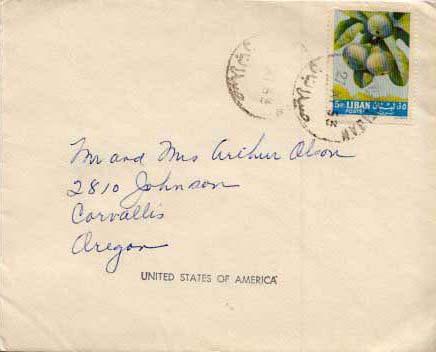 LIBAN لبنان
POSTES
Mr and Mrs Arthur Olson
2810 Johnson
Corvallis
Oregon
UNITED STATES OF AMERICA